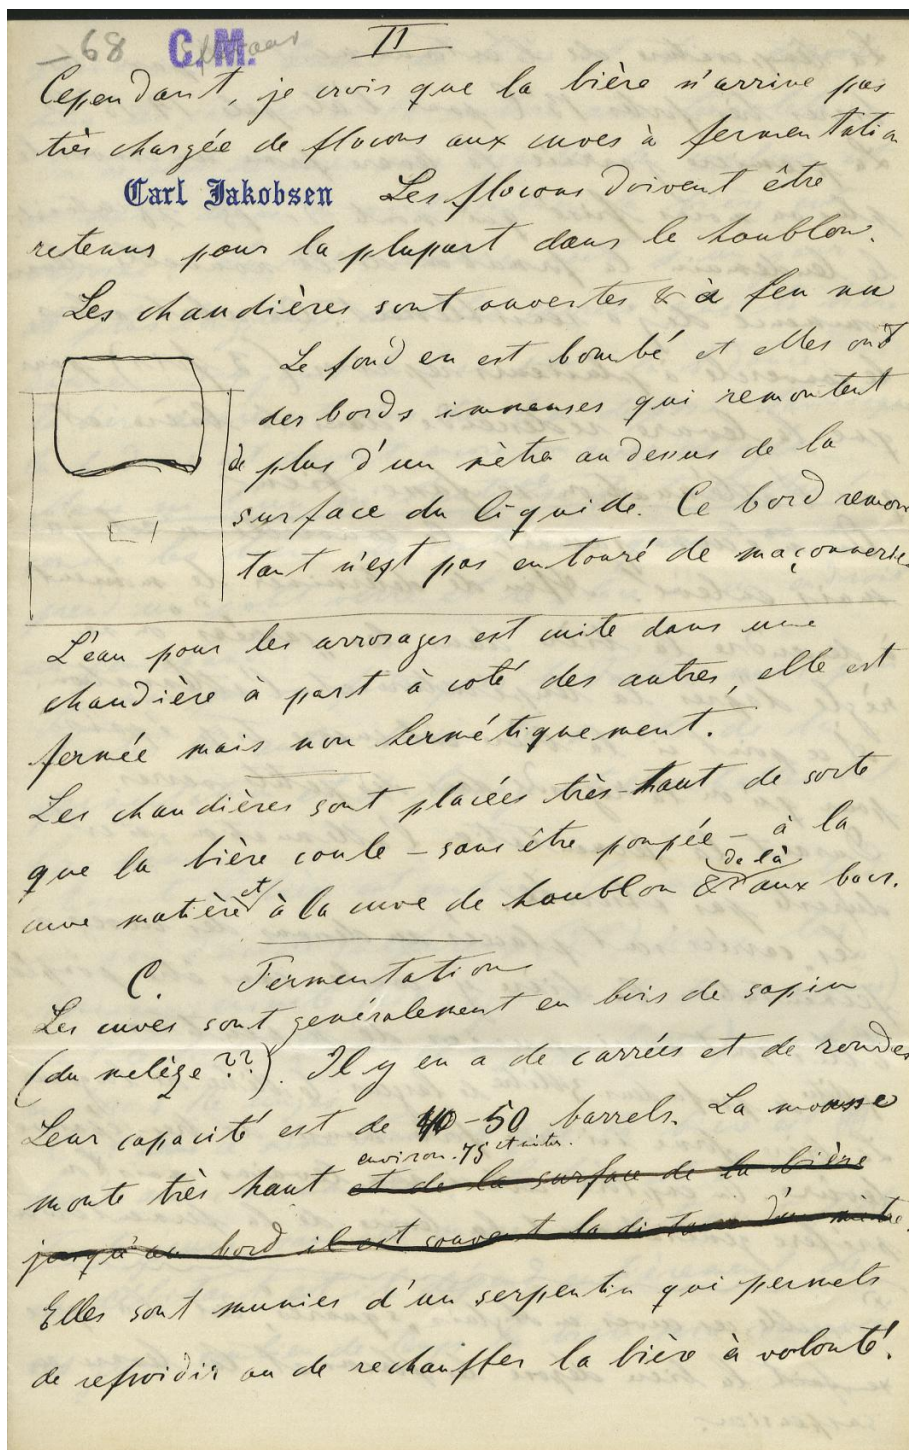 —68 C.M. II
Cependant, je crois que la bière n'arrive pas
très chargée de flocons aux cuves à fermentation
Carl Jakobsen Les flocons doivent être
retenus pour la plupart dans le houblon.
Les chaudières sont ouvertes & à feu nu
Le fond en est bombé et elles ont
des bords immenses qui remontent
de plus d'un mètre au dessus de la
surface du liquide. Ce bord remon
tant n'est pas entouré de maçonnerie.
L'eau pour les arrosages est cuite dans une
chaudière à part à coté des autres, elle est
fermée mais non hermétiquement.
Les chaudières sont placées très-haut de sorte
que la bière coule – sans être pompée – à la
cuve matière et à la cuve de houblon & de là aux bacs.
C. Fermentation
Les cuves sont generalement en bois de sapin
(du melèze ??). Il y en a de carrées et de rondes
Leur capacité est de 40-50 barrels. La mousse
environ 75
monte très haut et de la surface de la bière
jusqu'au bord il est souvent la distance d'un mètre.
Elles sont munies d'un serpentin qui permets
de refroidir ou de rechauffer la bière à volonté.